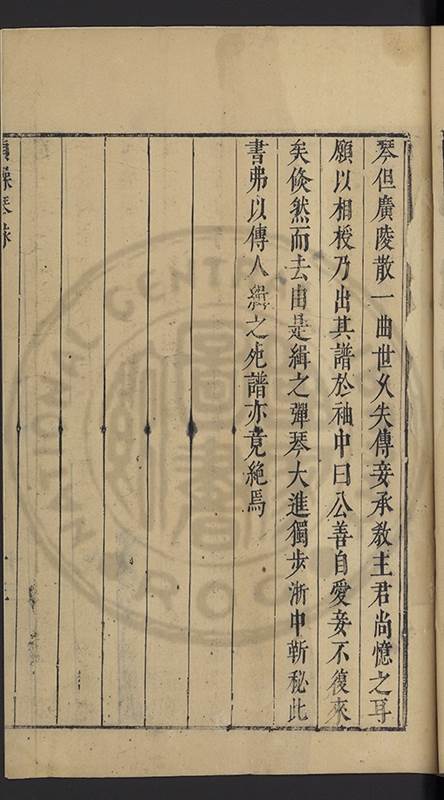 琴但廣陵散一曲世乆失傳妾承敎主君尚憶之耳
願以相授乃出其譜於袖中曰公善自愛妾不復來
矣倏然而去由是緝之彈琴大進獨步浙中靳秘此
書弗以傳人緝之死譜亦竟絕焉
琴